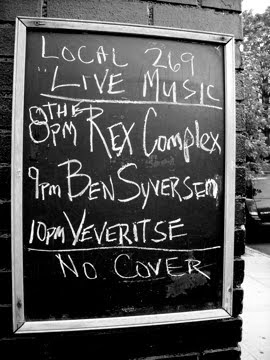 LOCAL 269
"LIVE MUSIC
8PM THE REX COMPLEX
9PM BEN SYVERSEN
10PM YEVERITSE
NO COVER